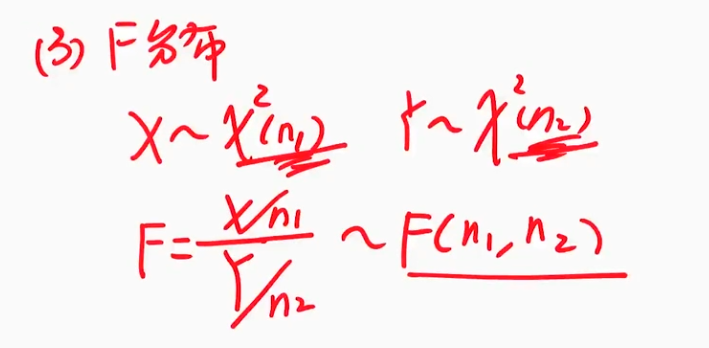 (3) F分布
X~χ²(n₁) Y~χ²(n₂)
F=(X/n₁)/(Y/n₂)~F(n₁,n₂)